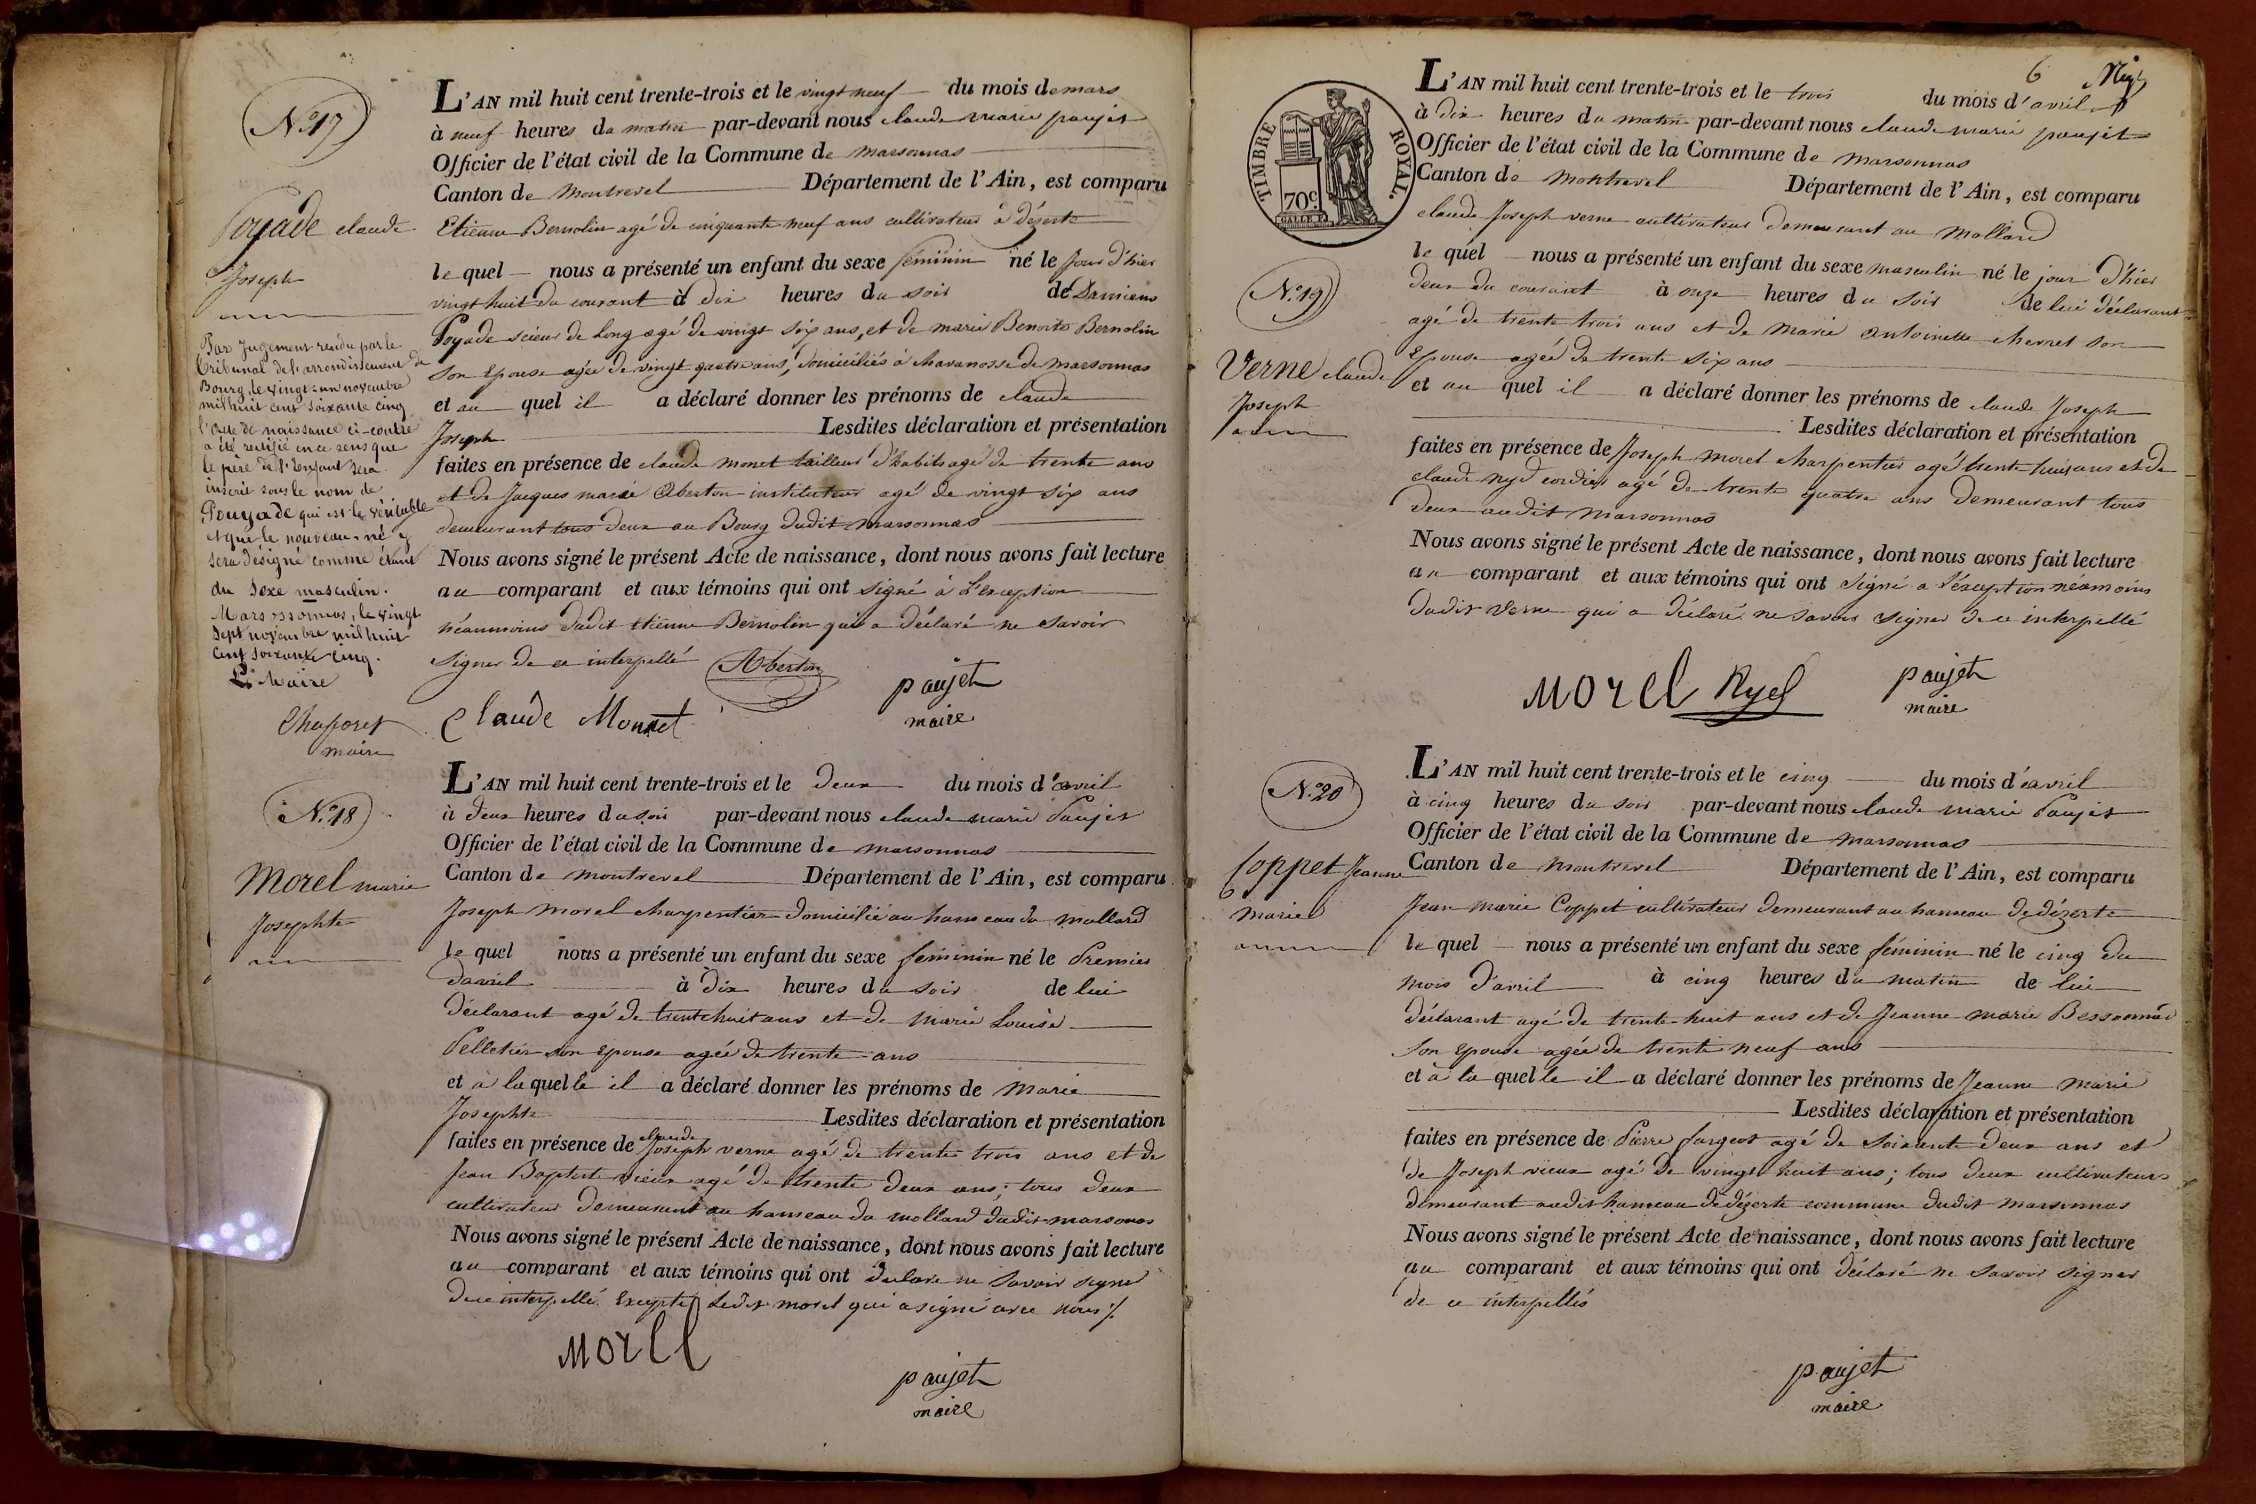 N.° 17
Poyade claude
Joseph
Par Jugement rendu par le
Tribunal de l'arrondissement de
Bourg, le vingt-un novembre
mil huit cent soixante cinq
l'acte de naissance ci-contre
a été rectifié en ce sens que
le père de l'enfant sera
inscrit sous le nom de
Pouyade qui est le véritable
et que le nouveau-né y
sera désigné comme étant
du sexe masculin.
Marsonnas, le vingt
sept novembre mil huit
cent soixante cinq.
Le Maire
maire
L'AN mil huit cent trente-trois et le vingt neuf du mois de mars
à neuf heures du matin par-devant nous claude marie paujet
Officier de l'état civil de la Commune de marsonnas
Canton de montrevel Département de l'Ain, est comparu
Etienne Bernolin agé de cinquante neuf ans cultivateur à dézerte
le quel nous a présenté un enfant du sexe féminin né le jour d'hier
vingt huit du courant à dix heures du soir de Damiens
Poyade scieur de long agé de vingt six ans, et de marie Benoite Bernolin
son Epouse agée de vingt quatre ans, domiciliés à chavanosse de marsonnas
et au quel il a déclaré donner les prénoms de claude
Joseph Lesdites déclaration et présentation
faites en présence de claude monet tailleur d'habits agé de trente ans
et de Jacques marie Aberton instituteur agé de vingt six ans
demeurant tous deux au Bourg dudit marsonnas
Nous avons signé le présent Acte de naissance, dont nous avons fait lecture
au comparant et aux témoins qui ont signé à l'exception
néanmoins dudit etienne Bernolin qui a déclaré ne savoir
signer de ce interpellé Aberton
paujet
Claude Monnet maire
N.° 18
Morel marie
Josephte
L'AN mil huit cent trente-trois et le deux du mois d'avril
à deux heures du soir par-devant nous claude marie Paujet
Officier de l'état civil de la Commune de marsonnas
Canton de montrevel Département de l'Ain, est comparu
Joseph Morel charpentier domicilié au hameau du mollard
le quel nous a présenté un enfant du sexe féminin né le Premier
d'avril à dix heures du soir de lui
déclarant agé de trente huit ans et de Marie Louise
Pelletier son epouse agée de trente ans
et à laquelle il a déclaré donner les prénoms de Marie
Josephte Lesdites déclaration et présentation
claude
faites en présence de Joseph verne agé de trente trois ans et de
Jean Baptiste vieux agé de trente deux ans; tous deux
cultivateurs demeurant au hameau du mollard dudit marsonnas
Nous avons signé le présent Acte de naissance, dont nous avons fait lecture
au comparant et aux témoins qui ont déclaré ne savoir signer
de ce interpellé Excepté Ledit morel qui a signé avec nous
MOREL
paujet
maire
6
TIMBRE ROYAL.
70 C.
N.° 19
Verne claude
Joseph
L'AN mil huit cent trente-trois et le trois du mois d'avril
à dix heures du matin par-devant nous claude marie paujet
Officier de l'état civil de la Commune de marsonnas
Canton de Montrevel Département de l'Ain, est comparu
claude Joseph verne cultivateur demeurant au Mollard
le quel nous a présenté un enfant du sexe masculin né le jour d'hier
deux du courant à onze heures du soir de lui déclarant
agé de trente trois ans et de Marie antoinette chernet son
Epouse agée de trente six ans
et au quel il a déclaré donner les prénoms de claude Joseph
Lesdites déclaration et présentation
faites en présence de Joseph morel charpentier agé trente huit ans et de
claude nyd cordier agé de trente quatre ans demeurant tous
deux audit marsonnas
Nous avons signé le présent Acte de naissance, dont nous avons fait lecture
au comparant et aux témoins qui ont signé a l'exception néamoins
dudit verne qui a déclaré ne savoir signer de ce interpellé
MOREL Nyd paujet
maire
N.° 20
Coppet Jeanne
Marie
L'AN mil huit cent trente-trois et le cinq du mois d'avril
à cinq heures du soir par-devant nous claude marie Paujet
Officier de l'état civil de la Commune de marsonnas
Canton de montrevel Département de l'Ain, est comparu
Jean marie Coppet cultivateur demeurant au hameau de dézerte
le quel nous a présenté un enfant du sexe féminin né le cinq du
mois d'avril à cinq heures du matin de lui
déclarant agé de trente-huit ans et de Jeanne marie Bessonnard
son epouse agée de trente neuf ans
et à la quelle il a déclaré donner les prénoms de Jeanne marie
Lesdites déclaration et présentation
faites en présence de Pierre fargeot agé de soixante deux ans et
de Joseph vieux agé de vingt huit ans; tous deux cultivateurs
demeurant audit hameau de dézerte commune dudit marsonnas
Nous avons signé le présent Acte de naissance, dont nous avons fait lecture
au comparant et aux témoins qui ont déclaré ne savoir signer
de ce interpellés
paujet
maire